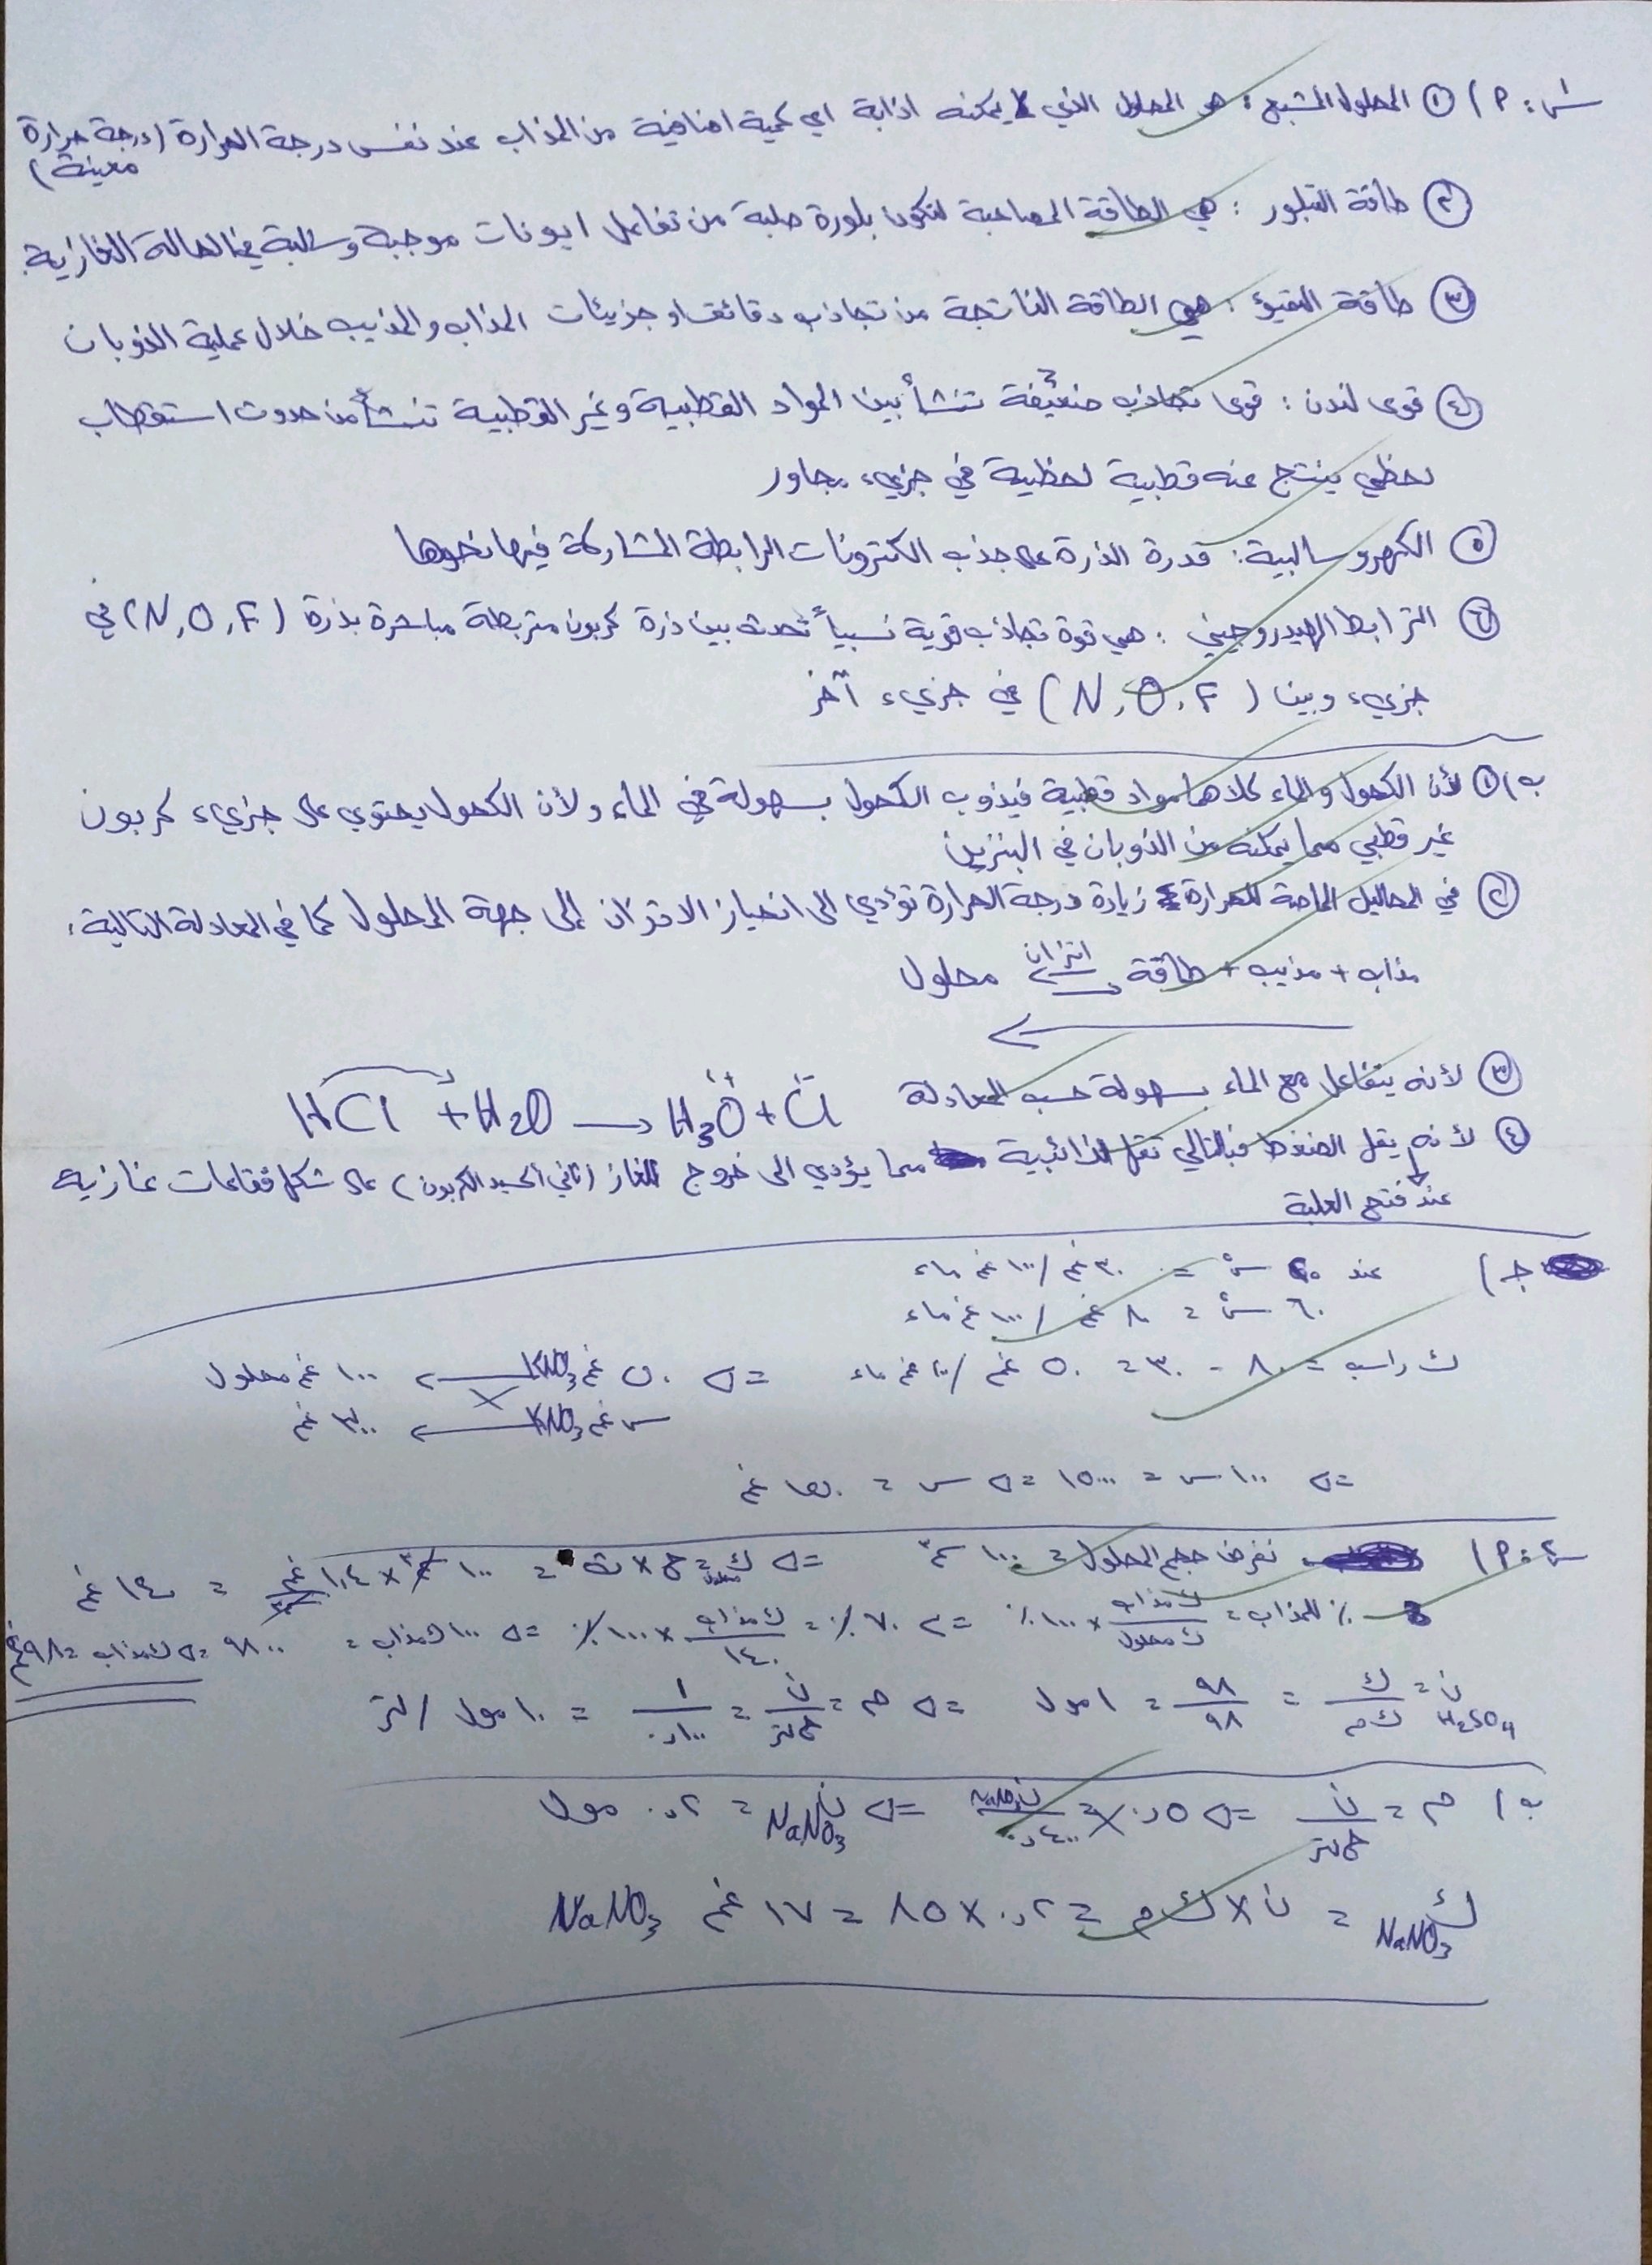 س١: أ) ① المحلول المشبع: هو المحلول الذي لا يمكنه اذابة اي كمية اضافية من المذاب عند نفس درجة الحرارة (درجة حرارة
معينة)
② طاقة التبلور: هي الطاقة المصاحبة لتكون بلورة صلبة من تفاعل ايونات موجبة وسالبة في الحالة الغازية.
③ طاقة التميؤ: هي الطاقة الناتجة من تجاذب دقائق او جزيئات المذاب والمذيب خلال عملية الذوبان
④ قوى لندن: قوى تجاذب ضعيفة تنشأ بين المواد القطبية وغير القطبية تنشأ من حدوث استقطاب
لحظي ينتج عنه قطبية لحظية في جزيء مجاور
⑤ الكهروسالبية: قدرة الذرة على جذب الكترونات الرابطة المشاركة فيها نحوها
⑥ الترابط الهيدروجيني: هي قوة تجاذب قوية نسبياً تحدث بين ذرة كربون متربطة مباشرة بذرة (N, O, F) في
جزيء وبين (N, O, F) في جزيء آخر
ب) ① لأن الكحول والماء كلاهما مواد قطبية فيذوب الكحول بسهولة في الماء ولأن الكحول يحتوي على جزيء كربون
غير قطبي مما يمكنه من الذوبان في البنزين
② في المحاليل الماصة للحرارة زيادة درجة الحرارة تؤدي الى انحياز الاتزان إلى جهة المحلول كما في المعادلة التالية:
مذاب + مذيب + طاقة ⇌ اتزان محلول
③ لأنه يتفاعل مع الماء بسهولة حسب المعادلة HCl + H2O → H3O⁺ + Cl⁻
④ لأنه يقل الضغط فبالتالي تقل الذائبية مما يؤدي الى خروج الغاز (ثاني اكسيد الكربون) على شكل فقاعات غازية
عند فتح العلبة
جـ) عند ٢٠ س° = ٣٠ غم / ١٠٠ غم ماء
٦٠ س° = ٨٠ غم / ١٠٠ غم ماء
ك راسب = ٨٠ - ٣٠ = ٥٠ غم / ١٠٠ غم ماء => ٥٠ غم KNO3 ← ١٠٠ غم محلول
س غم KNO3 ← ٣٠٠ غم
=> ١٠٠ س = ١٥٠٠٠ => س = ١٥٠ غم
س٢: أ) نفرض حجم المحلول = ١٠٠ سم³ => ك محلول = ح × ث = ١٠٠ سم³ × ١,٤ غم/سم³ = ١٤٠ غم
٪ للمذاب = ك مذاب / ك محلول × ١٠٠٪ => ٧٠٪ = ك مذاب / ١٤٠ × ١٠٠٪ => ١٠٠ ك مذاب = ٩٨٠٠ => ك مذاب = ٩٨ غم
ن H2SO4 = ك / ك م = ٩٨ / ٩٨ = ١ مول => م = ن / ح لتر = ١ / ٠,١٠٠ = ١٠ مول / لتر
ب) م = ن / ح لتر => ٠,٥ = ن NaNO3 / ٠,٤٠٠ => ن NaNO3 = ٠,٢ مول
ك NaNO3 = ن × ك م = ٠,٢ × ٨٥ = ١٧ غم NaNO3